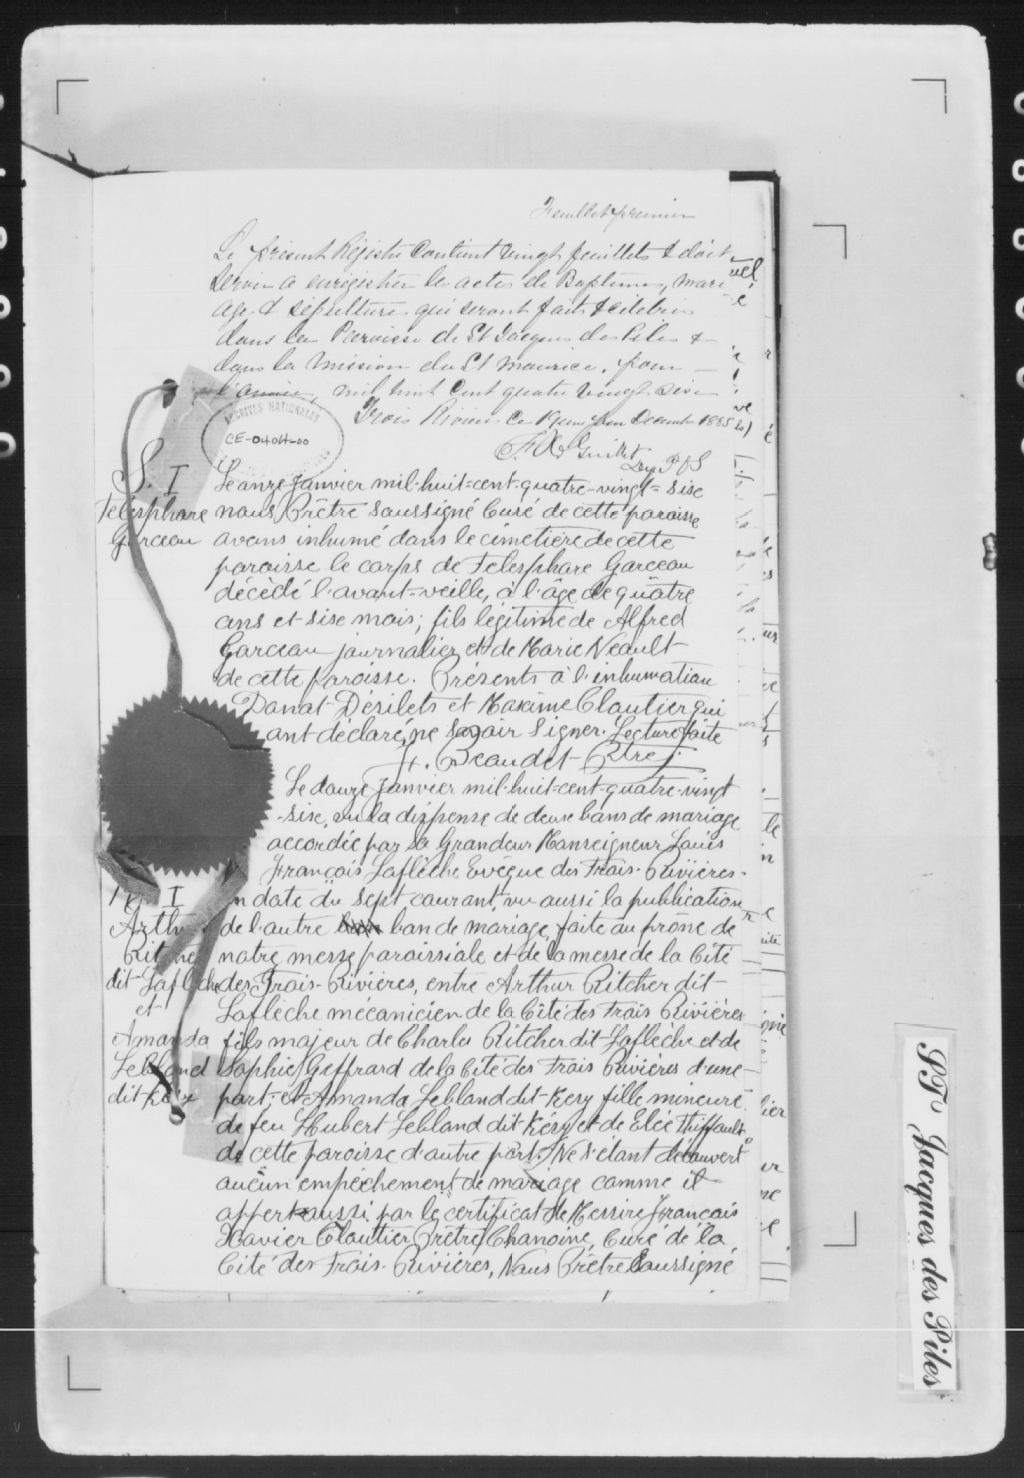 Feuillet premier
Le présent Régistre Contient vingt feuillets & doit
servir a enrigistrer les actes de Baptême, mari
age & sépulture qui seront faits & célébrés
dans la Paroisse de St Jacques des Piles &
dans la mission du St Maurice, pour
l'année, mil huit Cent quatre vingt Sise
Trois Rivieres Ce 19 Decembre 1885
ARCHIVES NATIONALES
CE-0404-00
F. X. Guillet
Dep P & S
S. I
Télesphore
Garceau
Le onze Janvier mil-huit-cent-quatre-vingt-sise
nous Prêtre soussigné Curé de cette paroisse
avons inhumé dans le cimetière de cette
paroisse le corps de Telesphore Garceau
décédé l'avant-veille, à l'âge de quatre
ans et sise mois; fils légitime de Alfred
Garceau journalier et de Marie Neault
de cette paroisse. Présents à l'inhumation
Donat Désilets et Maxime Cloutier qui
ont déclaré ne savoir signer. Lecture faite
H. Beaudet Ptre
Le douze Janvier mil-huit-cent-quatre-vingt
-sise, vu la dispense de deuse bans de mariage
accordée par Sa Grandeur Monseigneur Louis
François Laflèche Evêque des Trois-Rivières
n date du sept courant, vu aussi la publication
I
Arthur
Ritcher
dit Laflèche
et
Amanda
Lebland
dit
de l'autre ban de mariage, faite au prône de
notre messe paroissiale et de la messe de la Cité
des Trois-Rivières, entre Arthur Ritcher dit
Laflèche mécanicien de la Cité des Trois Rivières
fils majeur de Charles Ritcher dit Laflèche et de
Sophie Geffrard de la Cité des Trois Rivières d'une
part, et Amanda Lebland dit Kery fille mineure
de feu Hubert Lebland dit Kéry et de Elée Thiffault
de cette paroisse d'autre part. Ne s'étant découvert
aucun empêchement de mariage comme il
appert aussi par le certificat de Messire François
Xavier Cloutier Prêtre Chanoine, Curé de la
Cité des Trois-Rivières, Nous Prêtre Soussigné
ST Jacques des Piles